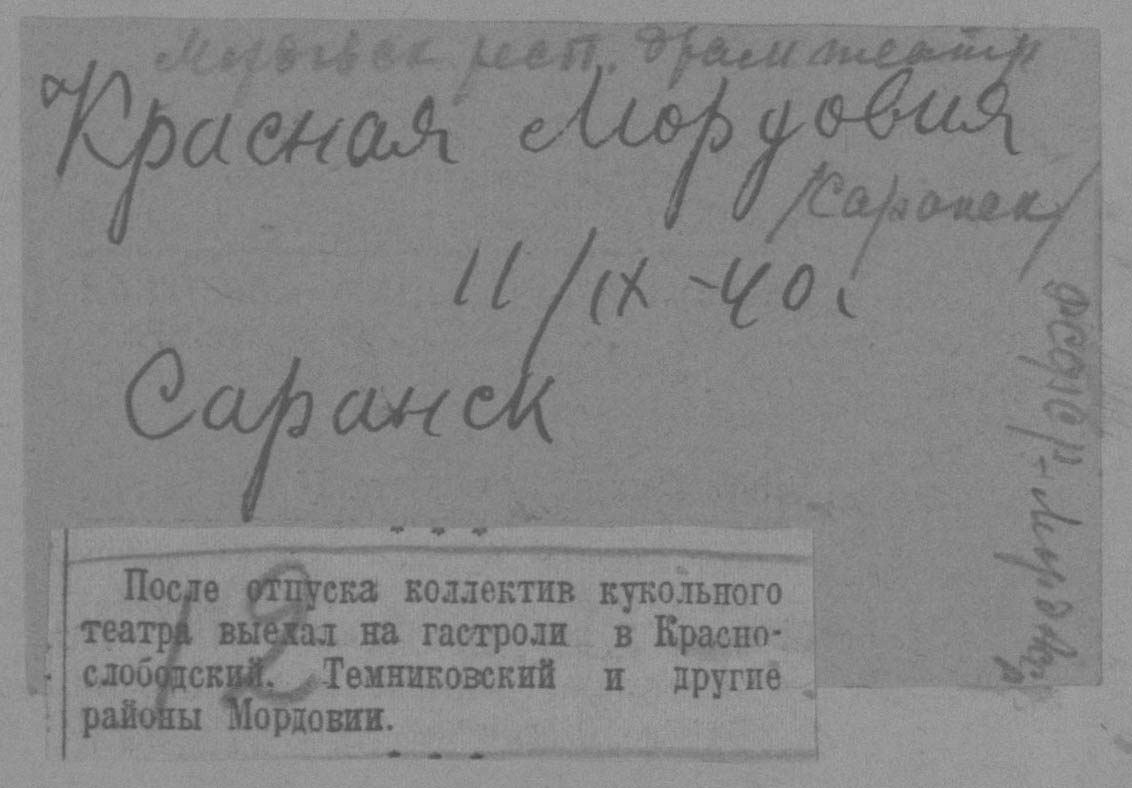 Мордовск респ. драмтеатр
Красная Мордовия
/Саранск/
11/IX-40.
Саранск
12
После отпуска коллектив кукольного
театра выехал на гастроли в Красно-
слободский, Темниковский и другие
районы Мордовии.